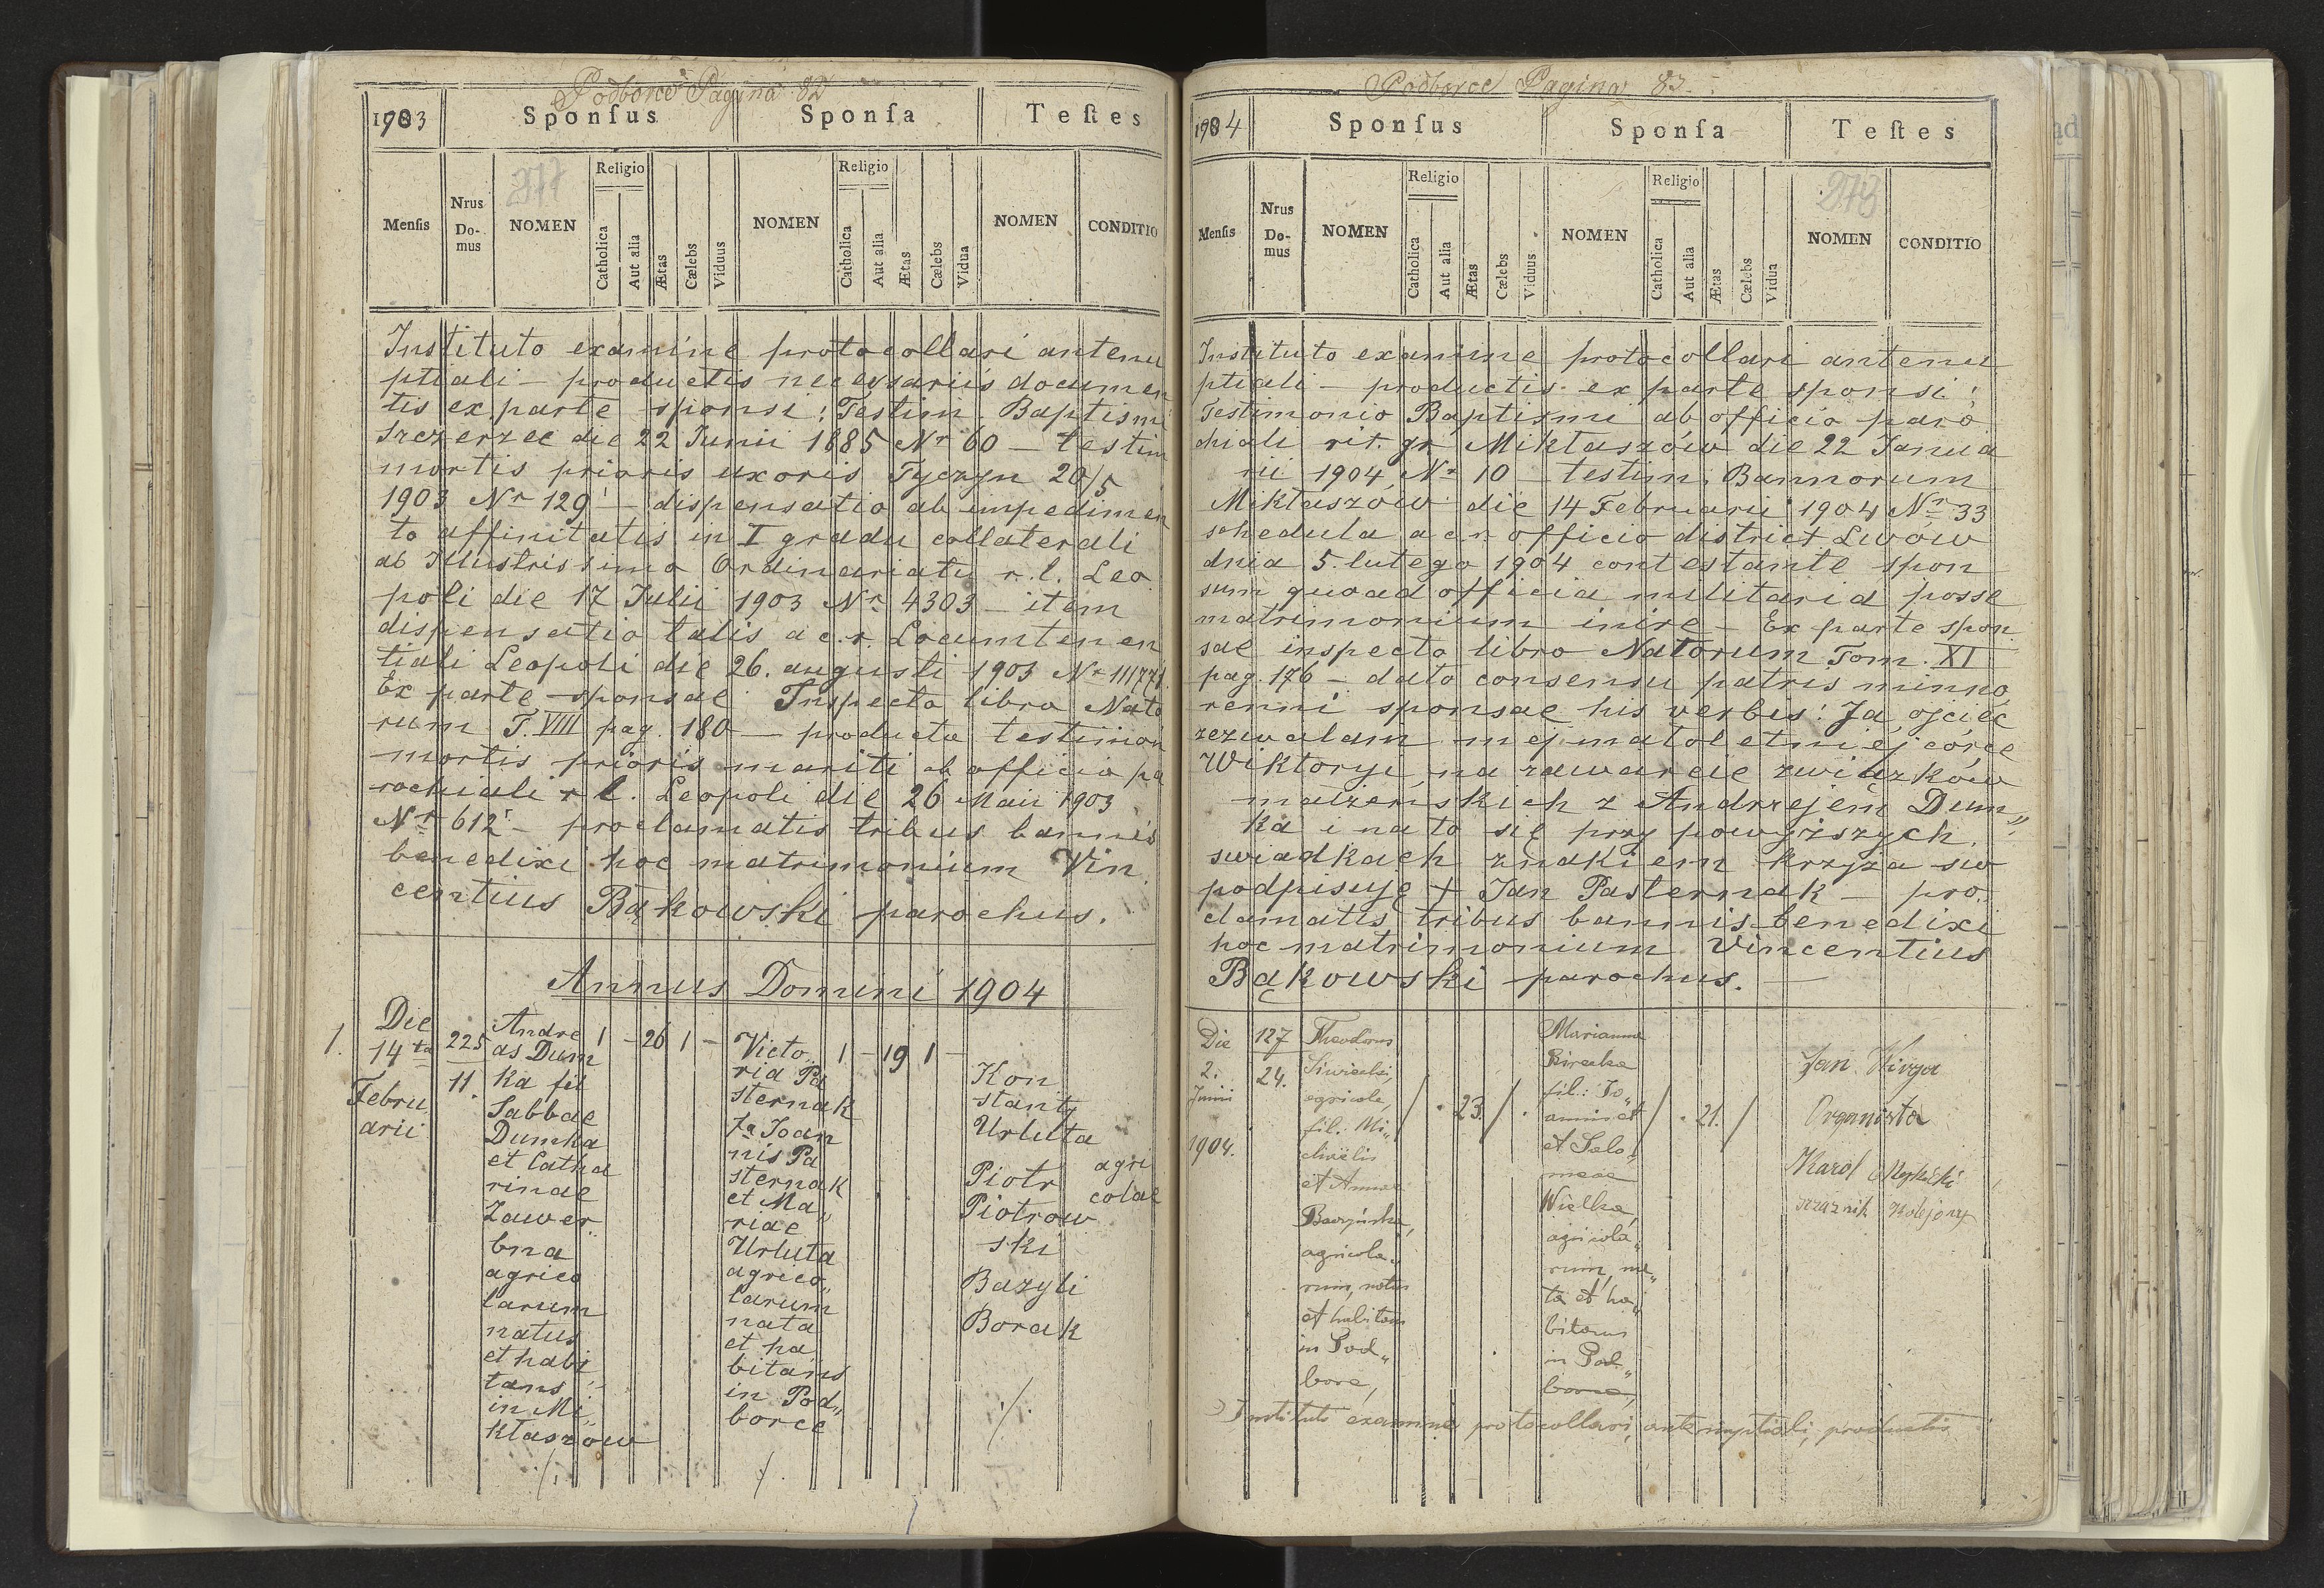 Podborce Pagina 82
1903 Sponſus Sponſa Teſtes
Menſis Nrus Do- mus NOMEN Religio Catholica Aut alia Ætas Cælebs Viduus NOMEN Religio Catholica Aut alia Ætas Cælebs Vidua NOMEN CONDITIO
277
Instituto examine protocollari antenu
ptiali – productis necessariis documen
tis ex parte sponsi: Testim. Baptismi
Szczerzec die 22 Junii 1885 Nr 60 – testim
mortis prioris uxoris Tyczyn 20/5
1903 Nr 129 – dispensatio ab impedimen
to affinitatis in I gradu collaterali
ab Illustrissimo Ordinariatu r. l. Leo
poli die 17 Julii 1903 Nr 4303 – item
dispensatio talis a c. r. Locumtenen
tiali Leopoli die 26. augusti 1903 Nr 111771
Ex parte sponsae Inspecto libro Nato
rum T. VIII pag. 180 – producto testimon
mortis prioris mariti ab officio pa
rochiali r. l. Leopoli die 26 Maii 1903
Nr 612 – proclamatis tribus bannis
benedixi hoc matrimonium Vin
centius Bąkowski parochus.
Annus Domini 1904
1. Die 14ta Febru arii
225 11.
Andre
as Dum
ka fil
Sabbae
Dumka
et Catha
rinae
Zawer
bna
agrico
larum
natus
et habi
tans
in Mi
kłaszow
1 – 26 1 –
Victo
ria Pa
sternak
fa Joan
nis Pa
sternak
et Ma„
riae
Urluta
agrico„
larum
nata
et ha
bitans
in Pod„
borce
1 – 19 1 –
Kon
stanty
Urluta
Piotr
Piotrow
ski
Bazyli
Borak
agri
colae
Podborce Pagina 83.
1904 Sponſus Sponſa Teſtes
Menſis Nrus Do- mus NOMEN Religio Catholica Aut alia Ætas Cælebs Viduus NOMEN Religio Catholica Aut alia Ætas Cælebs Vidua NOMEN CONDITIO
Instituto examine protocollari antenu
ptiali – productis ex parte sponsi:
Testimonio Baptismi ab officio paro
chiali rit. gr Mikłaszów die 22 Janua
rii 1904 Nr 10 – testim. Bannorum
Mikłaszów die 14 Februarii 1904 Nr 33
schedula a c. r. officio district Lwów
dnia 5. lutego 1904 contestante spon
sum quoad officia militaria posse
matrimonium inire – Ex parte spon
sae inspecto libro Natorum Tom. XI
pag. 176 – dato consensu patris minno
renni sponsae his verbis: Ja, ojciec
zezwalam mej małoletniej córce
Wiktoryi na zawarcie związków
małżeńskich z Andrzejem Dum„
ka i na to się przy powyższych
swiadkach znakiem krzyża św
podpisuję + Jan Pasternak – pro
clamatis tribus bannis benedixi
hoc matrimonium Vincentius
Bąkowski parochus. –
Die 2. Junii 1904.
127 24.
Theodorus
Siwiecki,
agricola,
fil. Mi„
chaëlis
et Annae
agricola„
rum, natus
et habitans
in Pod„
borce,
/ . 23. / .
Marianna
fil.: Jo„
annis et
et Salo„
meae
Wielka,
agricola„
rum, na„
ta et ha„
bitans
in Pod„
borce,
/ . 21. /
Organista
Karol
kolejowy
Instituto examine protocollari, antenuptiali, productis